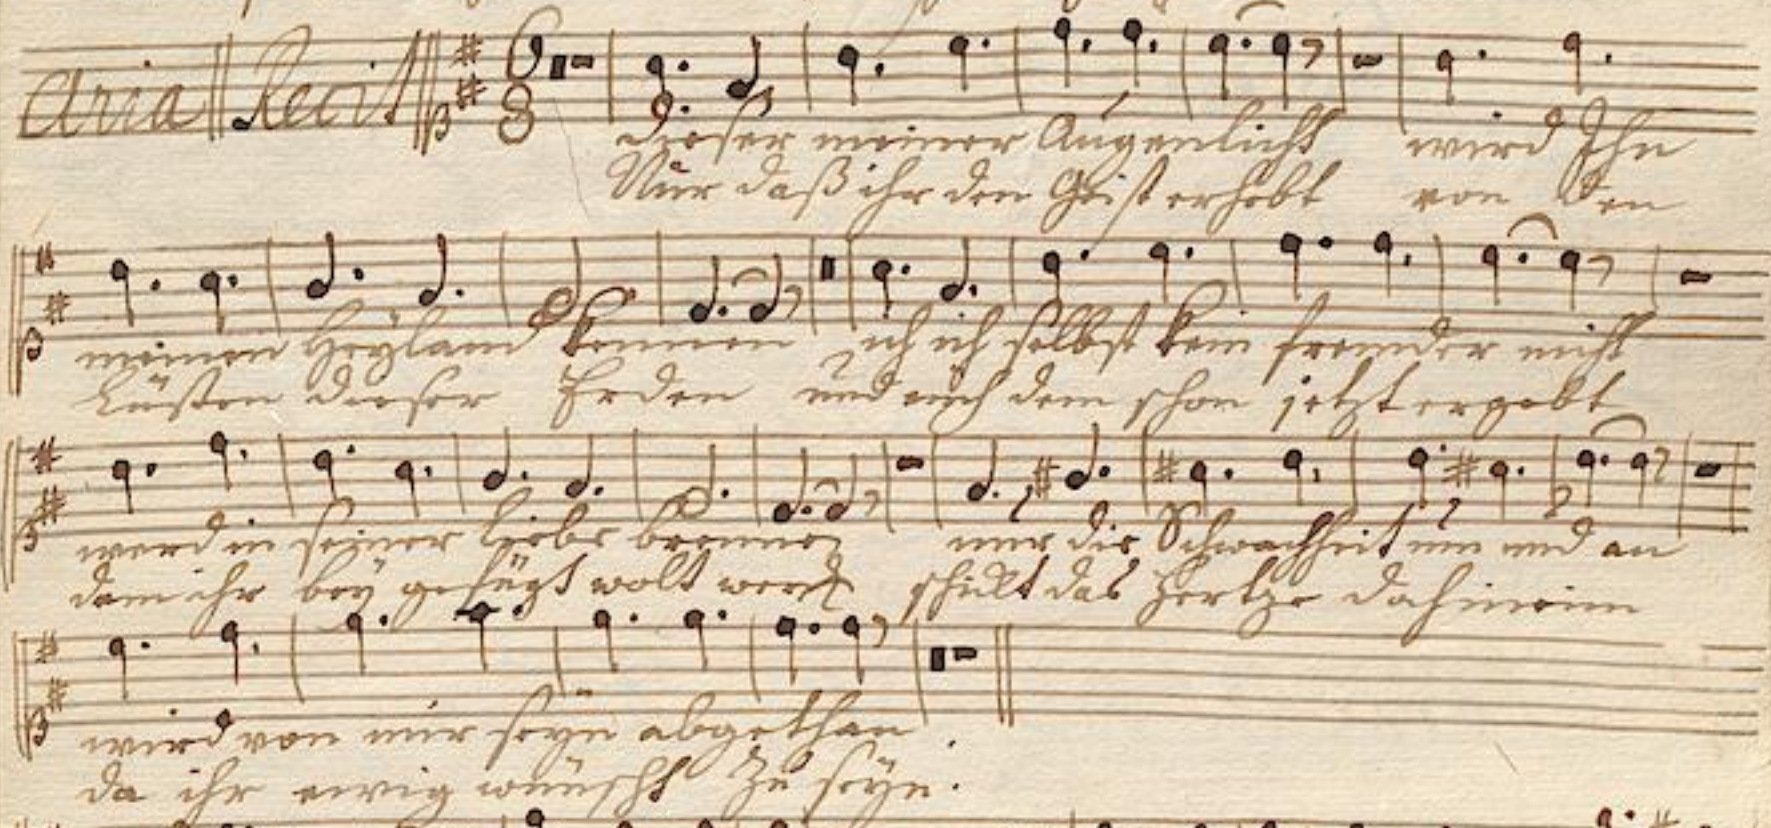 Aria Recit
6
8
dieser meiner Augenlicht wird Ihn
Nur daß ihr den Geist erhebt von den
meinen Heyland kennen ich ich selbst kein frembder nicht
Lüsten dieser Erden und euch dem schon jetzt ergebt
werd in seiner liebe brennen nur die Schwachheit um und an
dem ihr bey gefügt wolt werd schickt das Hertze da hinein
wird von mir seyn abgethan
da ihr ewig wünscht zu seyn.